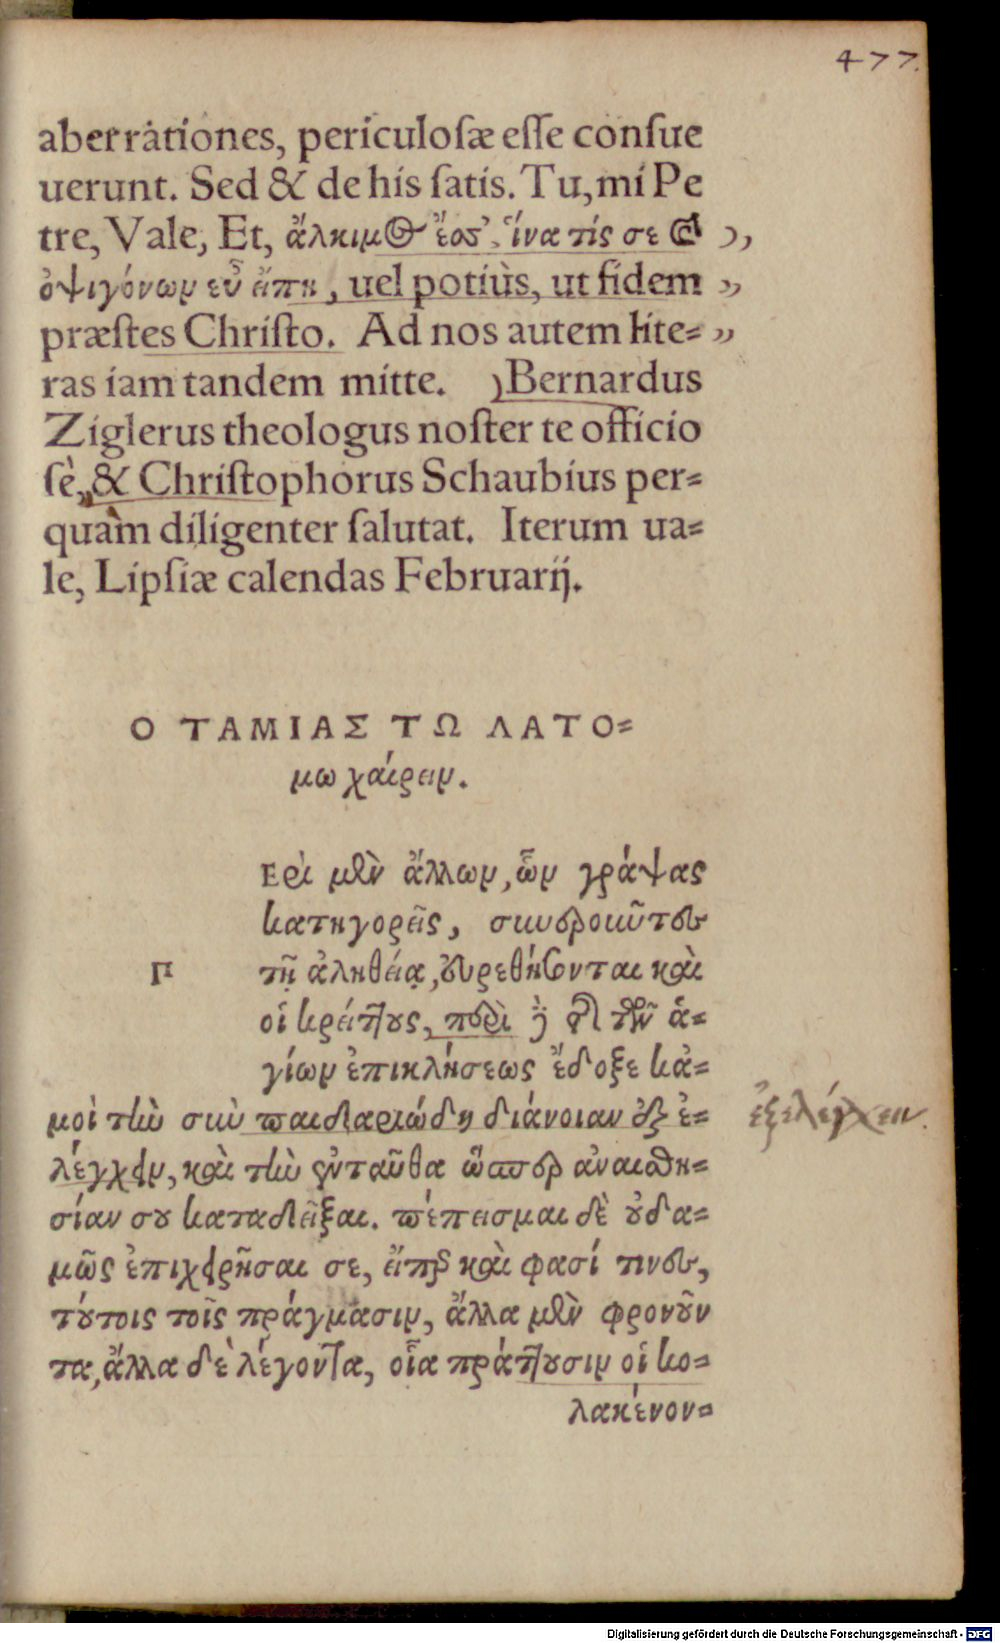 477.
aberrationes, periculosæ esse consue
uerunt. Sed & de his satis. Tu, mi Pe
tre, Vale, Et, ἄλκιμος ἔσσ', ἵνα τίς σε καὶ
ὀψιγόνων εὖ εἴπῃ, uel potiùs, ut fidem
præstes Christo. Ad nos autem lite=
ras iam tandem mitte. Bernardus
Ziglerus theologus noster te officio
sè, & Christophorus Schaubius per=
quàm diligenter salutat. Iterum ua=
le, Lipsiæ calendas Februarij.
Ο ΤΑΜΙΑΣ ΤΩ ΛΑΤΟ=
μω χαίρειν.
Π
ΕΡὶ μὲν ἄλλων, ὧν γράψας
κατηγορεῖς,
τῇ ἀληθείᾳ, εὑρεθήσονται καὶ
οἱ κρείττους, περὶ τῶν ἁ=
γίων ἐπικλήσεως ἔδοξε κἀ=
μοὶ τὴν σὴν παιδαριώδη διάνοιαν ἐξε=
λέγχειν, καὶ τὴν ἐνταῦθα ὥσπερ ἀναισθη=
σίαν σου καταδεῖξαι. πέπεισμαι δὲ οὐδα=
μῶς ἐπιχειρῆσαι σε, εἴπερ καὶ φασί τινες,
τούτοις τοῖς πράγμασιν, ἄλλα μὲν φρονοῦν
τα, ἄλλα δὲ λέγοντα, οἷα πράττουσιν οἱ κο=
λακένον=
ἐξελέγχειν.
Digitalisierung gefördert durch die Deutsche Forschungsgemeinschaft - DFG